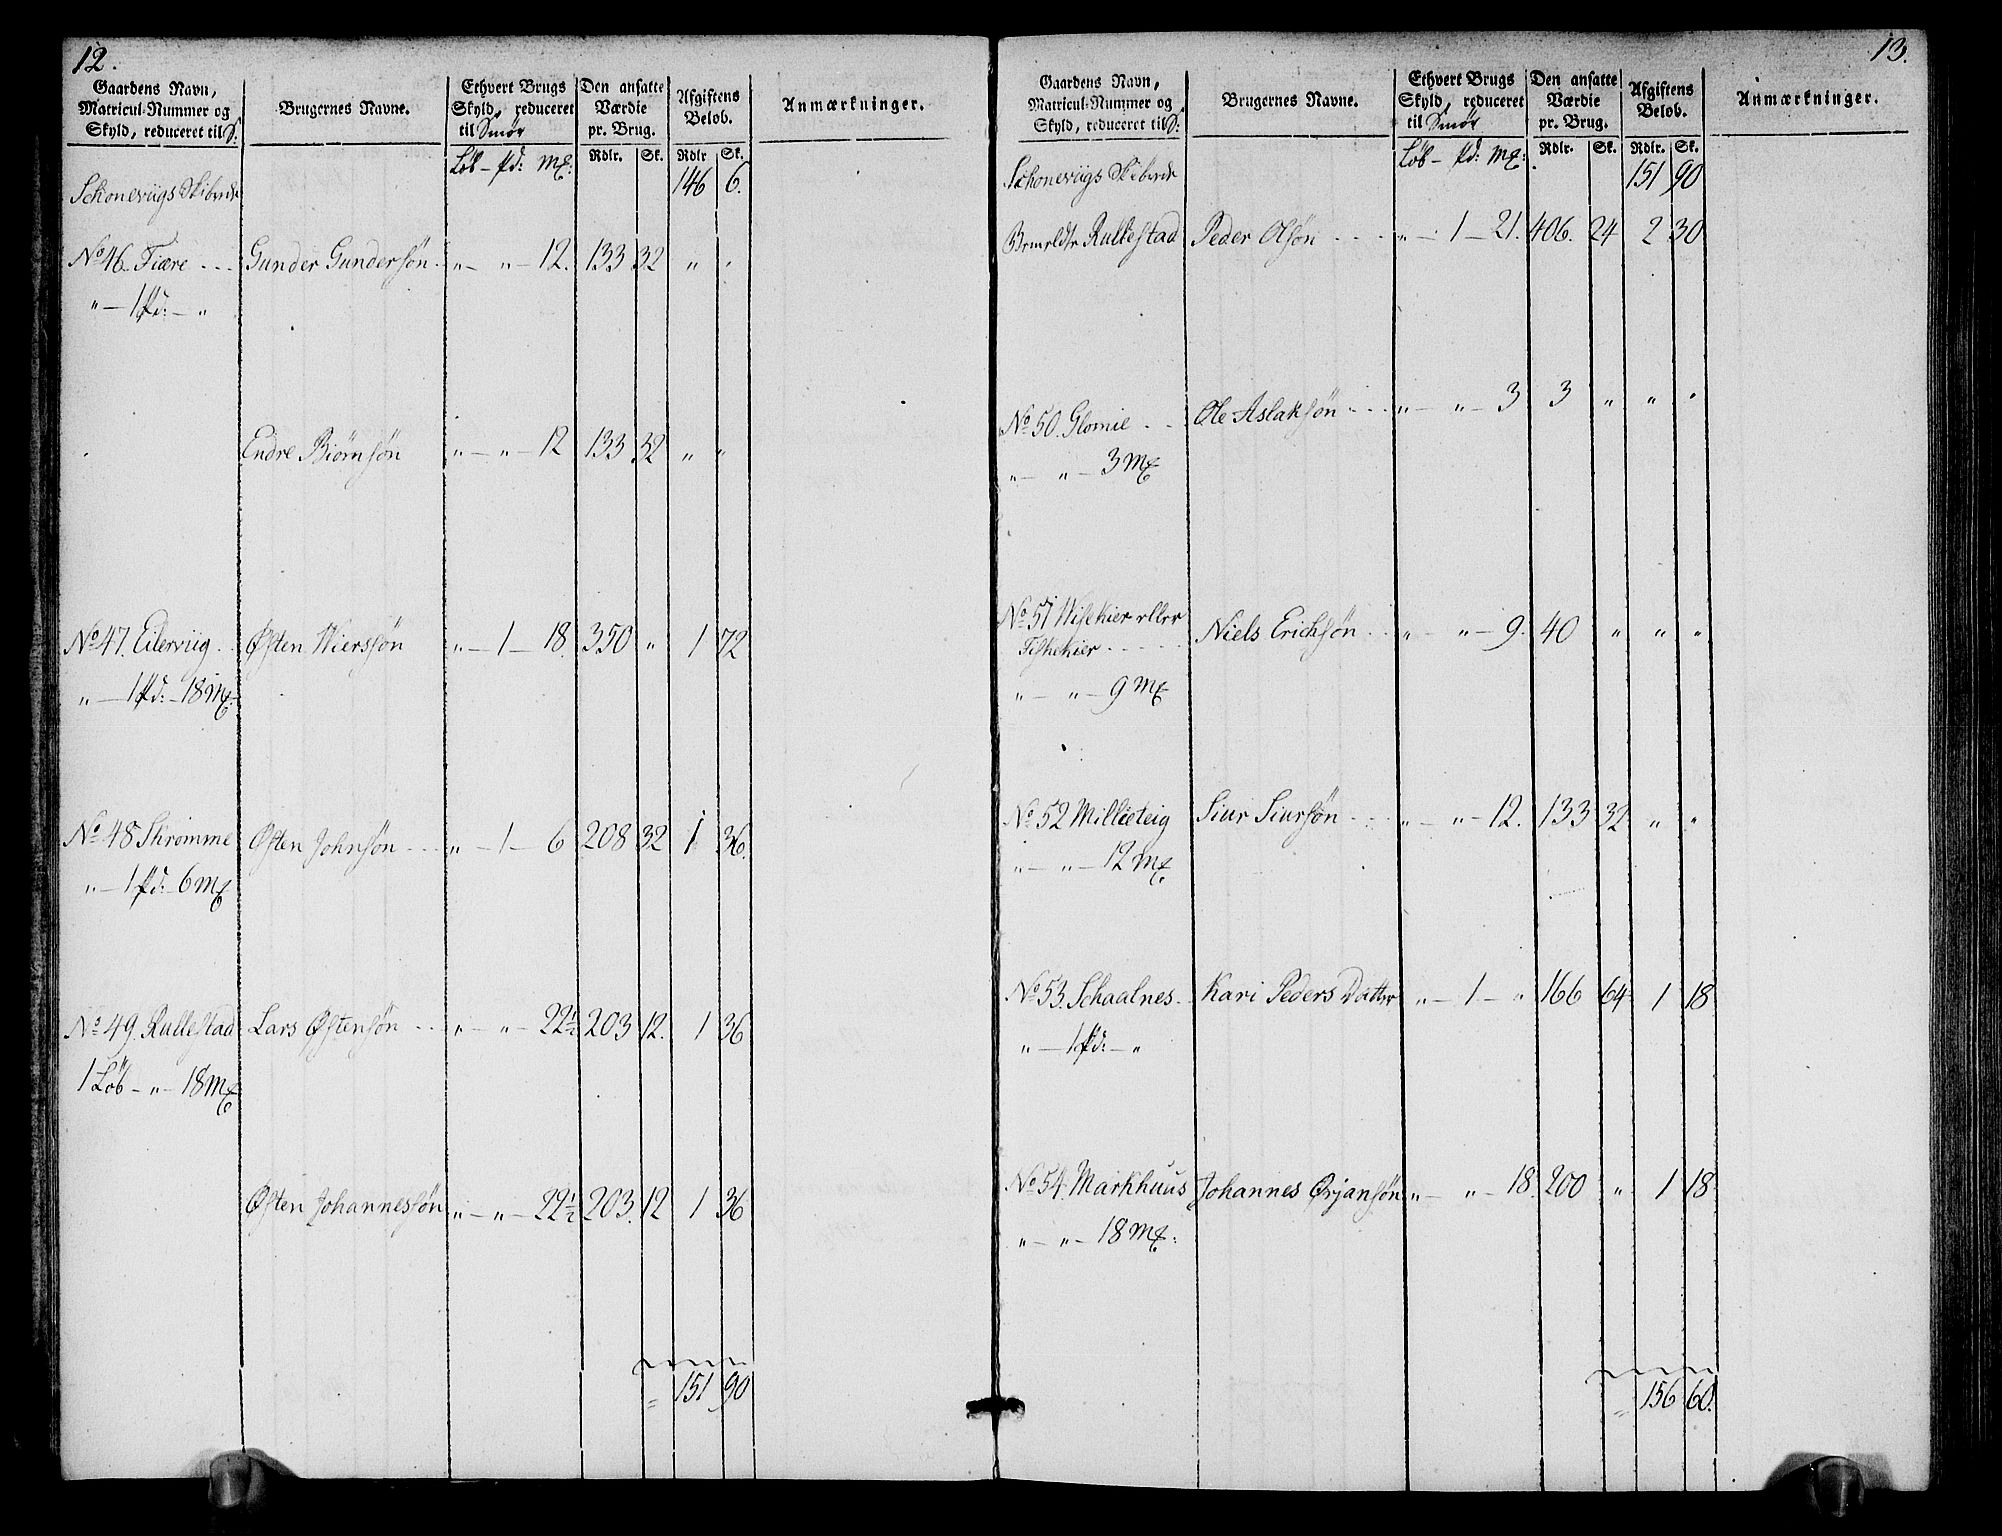 12.
Gaardens Navn, Matricul-Nummer og Skyld, reduceret til S: | Brugernes Navne. | Ethvert Brugs Skyld, reduceret til Smør | Den ansatte Værdie pr. Brug. | Afgiftens Beløb. | Anmærkninger.
Løb - pd: mk: | Rdlr. | Sk. | Rdlr | Sk.
Schonevigs Skibrede 146 6.
No 46 Fiære - - - Gunder Gundersøn - " - " - 12. 133 32 " "
" - 1 pd: - "
Endre Biørnsøn " - " - 12 133 32 " "
No 47. Eilerviig - - Østen Wierssøn " - 1 - 18. 350 " 1 72
" - 1 pd: - 18 mk:
No 48 Skromme Østen Johnsøn - - - " - 1 - 6 208 32 1 36.
" - 1 pd: - 6 mk
No 49. Rullestad Lars Østensøn - - " - " - 22½ 203 12. 1 36
1 Løb - " - 18 mk
Østen Johannessøn " - " - 22½ 203. 12 1 36
= 151 90
13.
Gaardens Navn, Matricul-Nummer og Skyld, reduceret til S: | Brugernes Navne. | Ethvert Brugs Skyld, reduceret til Smør | Den ansatte Værdie pr. Brug. | Afgiftens Beløb. | Anmærkninger.
Løb - pd: mk: | Rdlr. | Sk. | Rdlr. | Sk.
Schoneviigs Skibrede 151 90
Rullestad Peder Olsøn - - - - " - 1 - 21. 406. 24 2 30
No 50. Glomie - - Ole Aslaksøn - - - " - " - 3 3 " " "
" - " - 3 mk
No 51 Wisekier eller Niels Erichsøn - - " - " - 9. 40 " " "
Fiskekier - - - - -
" - " - 9 mk
No 52 Millieteig Siur Siursøn - - - " - " - 12. 133 32 " "
" - " - 12 mk
No 53. Schaalnes - Kari Peders Datter " - 1 - " 166 64 1 18
" - 1 pd: - "
No 54. Markhuus Johannes Ørjansøn " - " - 18. 200 " 1 18
" - " - 18 mk:
= 156 60.